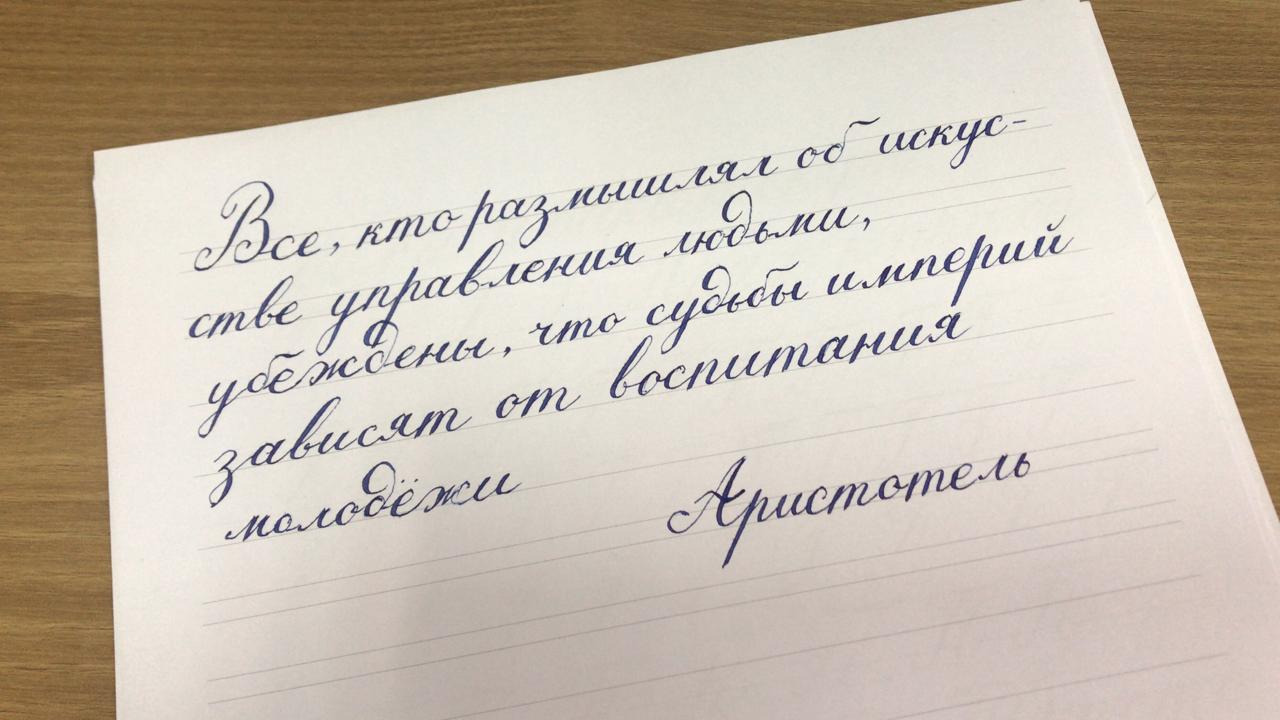 Все, кто размышлял об искус-
стве управления людьми,
убеждены, что судьбы империй
зависят от воспитания
молодёжи
Аристотель